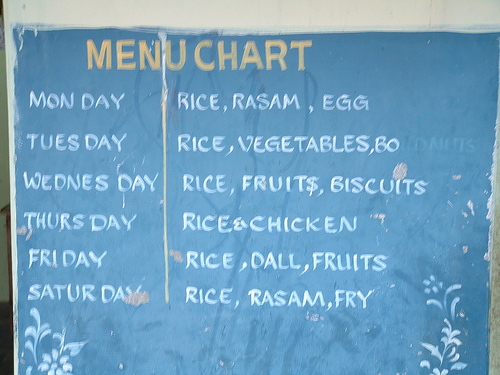 MENU CHART
MONDAY RICE, RASAM, EGG
TUESDAY RICE, VEGETABLES, BO
WEDNESDAY RICE, FRUITS, BISCUITS
THURSDAY RICE & CHICKEN
FRIDAY RICE, DALL, FRUITS
SATURDAY RICE, RASAM, FRY